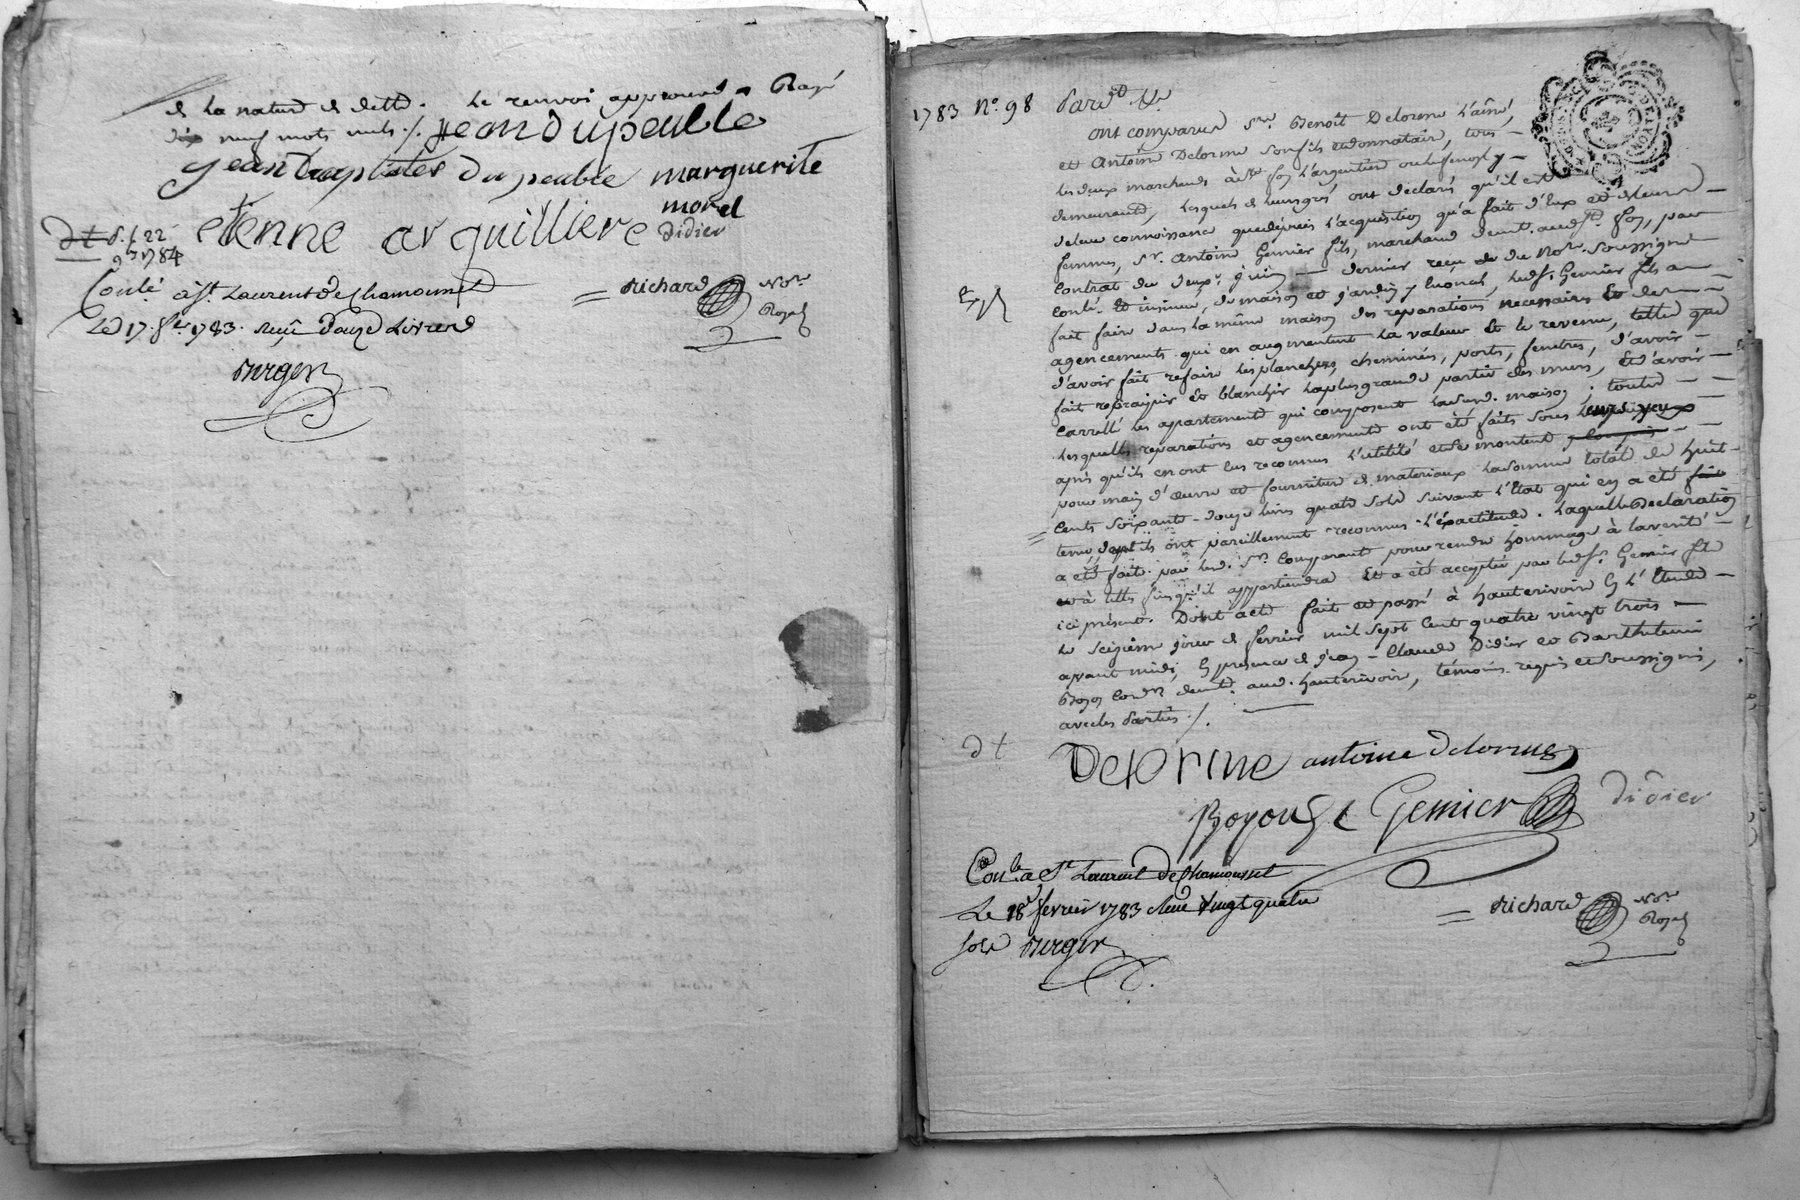 de la nature de dette. Le renvoi approuvé Rayé
dix neuf mots nuls ./. jean dupeuble
jean baptistes Dupeuble marguerite
morel
etienne arquilliere didier
dt d. f. 22
9bre 1784
Conlé à St. Laurent de Chamousset
Le 17. fer 1783. reçu douze Livres
Richard Nore
Royal
Burger
1783 No. 98 Pardt. Nre
ont comparus Srs. Benoit Delorme L'aîné,
et Antoine Delorme son fils et donnataire, tous
les deux marchands à Ste foy L'argentiere
demeurants, lesquels de leur gré ont declaré qu'il est
de leur connoissance que depuis L'acquisition qu'a fait d'eux et de leurs
femmes, Sr. Antoine Gemier fils, marchand demt. aud. Ste foy, par
contrat du deux juin dernier reçu du Nore. Soussigné
conlé et insinué, de maison et jardin y enoncés, ledt Sr. Gemier fils a
fait faire dans la même maison des reparations necessaires et des
agencements qui en augmentent la valeur et le revenu, telles que
d'avoir fait refaire les planchers, cheminées, portes, fenetres, d'avoir
fait recrepir et blanchir la plus grande partie des murs, et d'avoir
carrellé les apartements qui composent lad. maison; toutes
lesquelles reparations et agencements ont été faits sous leurs yeux
après qu'ils en ont eus reconnus L'utilité et se montent
pour main d'œuvre et fourniture de materiaux la somme totale de huit
cents soixante-douze livres quatre sols suivant L'état qui en a été
tenu, dont ils ont pareillement reconnus L'exactitude. Laquelle declaration
a été faite par lesd. Srs. Comparants pour rendre hommage à la verité
et à telles fins qu'il appartiendra et a été acceptée par ledt Sr. Gemier fils
ici present. Dont acte fait et passé à hauterivoire en L'Etude
le seizieme jour de fevrier mil sept cent quatre vingt trois
avant midi, en presence de jean-Claude Didier et Barthelemi
demts. aud. hauterivoire, témoins requis et soussignés,
avec les Parties ./.
dt
Delorme antoine delorme
Gemier didier
Conlé à St Laurent De Chamousset
Le 18 fevrier 1783 Reçu vingt quatre
sols Burger
Richard Nore
Royal